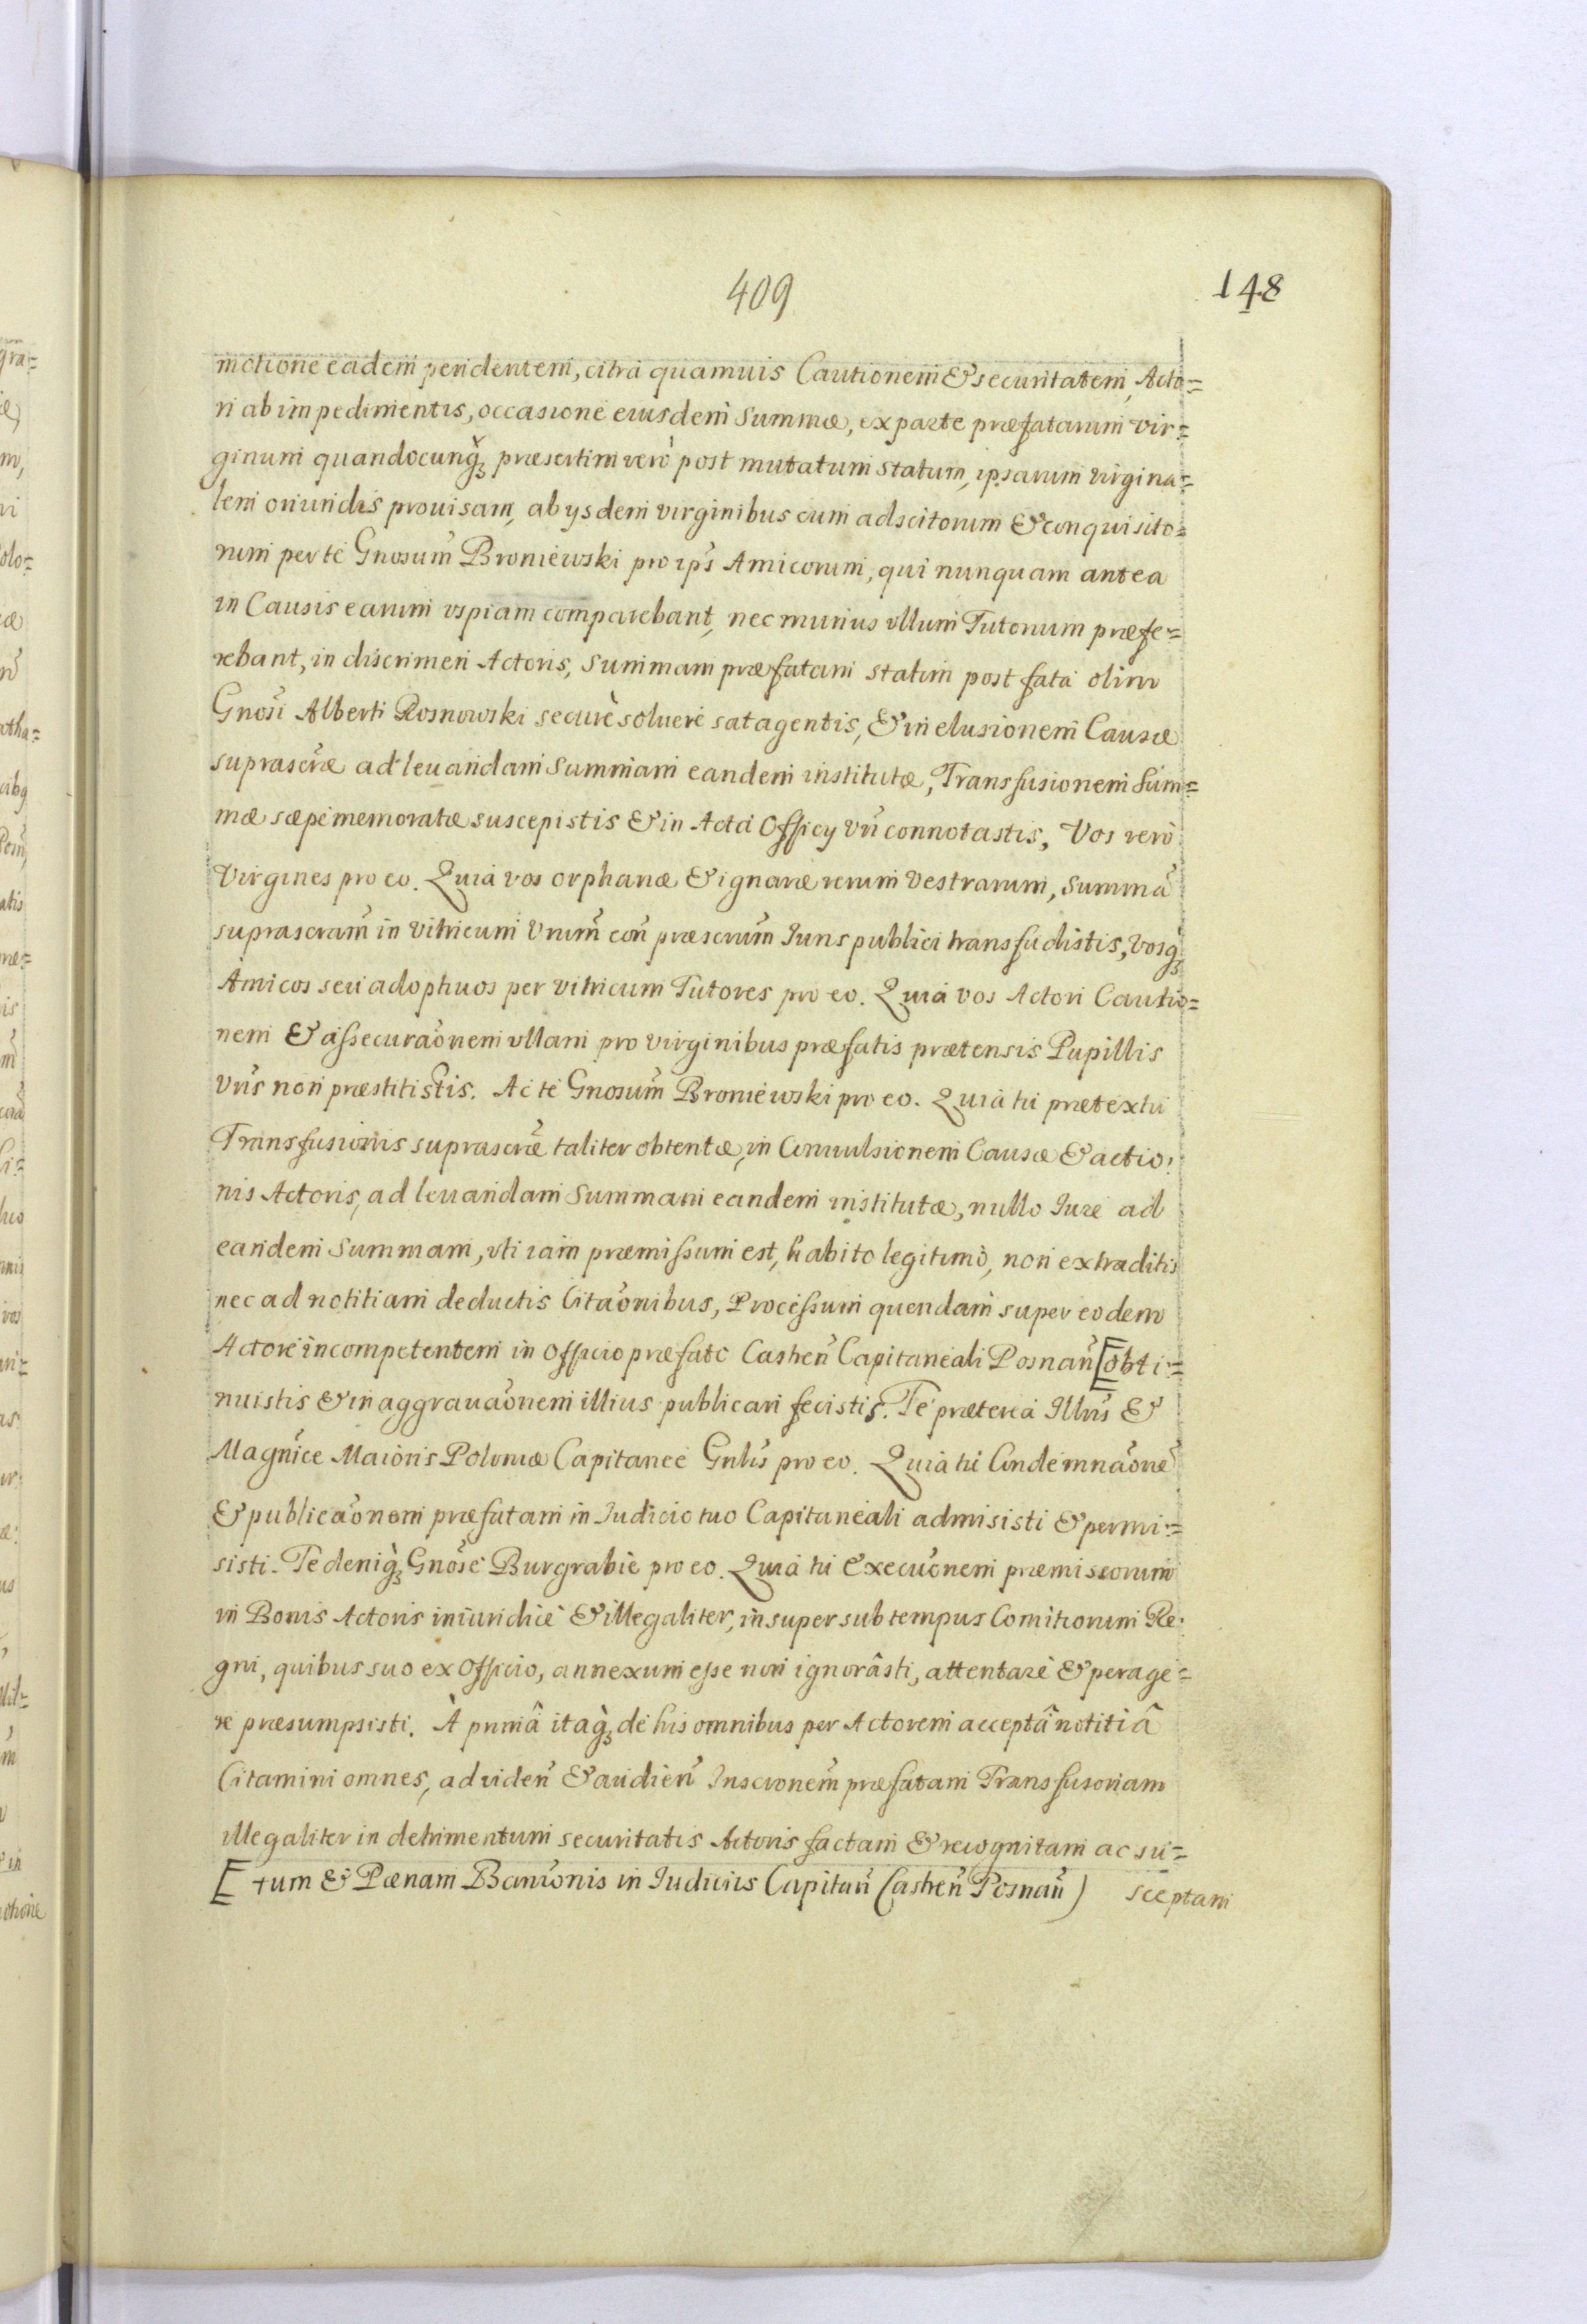 409
148
motione eadem pendentem, citra quamuis Cautionem & securitatem, Acto=
ri ab impedimentis, occasione eiusdem Summæ, ex parte præfatarum vir=
ginum quandocunq₃ præsertim verò post mutatum statum, ipsarum virgina=
lem oriundis prouisam, ab ysdem virginibus cum adscitorum & conquisito=
rum per te Gnosum̃ Broniewski pro ip̃s Amicorum, qui nunquam antea
in Causis earum vspiam comparebant, nec munus vllum Tutorum præfe=
rebant, in discrimen Actoris, Summam præfatam statim post fata olim
Gnosi Alberti Rosnowski securè soluere satagentis, & in elusionem Causæ
suprascr̃æ ad leuandam Summam eandem institutæ, Transfusionem Sum=
mæ sæpe memoratæ suscepistis & in Acta Officy vñ connotastis, Vos verò
Virgines pro eo. Quia vos orphanæ & ignaræ rerum vestrarum, Summã
suprascram̃ in vitricum Vrum̃ coñ præscrum̃ Iuris publici transfudistis, vosq₃
Amicos seu adoptiuos per vitricum Tutores pro eo. Quia vos Actori Cautio=
nem & assecuraõnem vllam pro virginibus præfatis prætensis Pupillis
Vr̃is non præstitistis. Ac te Gnosum̃ Broniewski pro eo. Quia tu prætextu
Transfusionis suprascr̃æ taliter obtentæ, in Conuulsionem Causæ & actio:
nis Actoris, ad leuandam Summam eandem institutæ, nullo Iure ad
eandem Summam, vti iam præmissum est, habito legitimo, non extraditis
nec ad notitiam deductis Citaõnibus, Processum quendam super eodem
Actore incompetentem in officio præfato Castreñ Capitaneali Posnañ [obti=
nuistis & in aggrauaõnem illius publicari fecistis. Te præterea Illr̃is &
Magnĩce Maioris Poloniæ Capitanee Gnl̃is pro eo. Quia tu Condemnaõnẽ
& publicaõnem præfatam in Iudicio tuo Capitaneali admisisti & permi=
sisti. Te deniq₃ Gnõse Burgrabie pro eo. Quia tu Execuõnem præmissorum
in Bonis Actoris iniuridicè & illegaliter, insuper sub tempus Comitiorum Re:
gni, quibus suo ex Officio, annexum esse non ignorâsti, attentare & perage=
re præsumpsisti. À primâ itaq₃ de his omnibus per Actorem acceptâ notitiâ
Citamini omnes, ad videñ & audieñ Inscrõnem præfatam Transfusoriam
illegaliter in detrimentum securitatis Actoris factam & recognitam ac su=
[tum & Pœnam Bannõnis in Iudiciis Capitañ Castreñ Posnañ)
sceptam